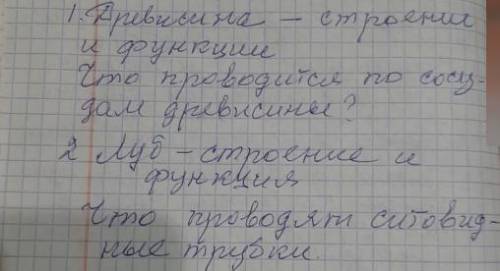 1. Древисина - строение
и функции
Что проводится по сосу-
дам древисины?
2 Луб - строение и
функция
Что проводят ситовид-
ные трубки.